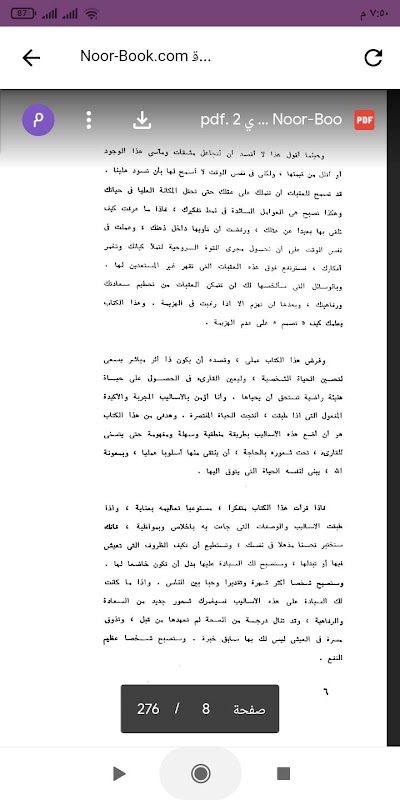 ٧:٥٠ م
87
Noor-Book.com ة...
pdf. 2 ي ... Noor-Boo
PDF
وحينما أقول هذا لا أقصد أن أتجاهل مشقات ومآسي هذا الوجود
أو أقلل من قيمتها ، ولكنى فى نفس الوقت لا أسمح لها بأن تسود علينا .
قد تسمح للعقبات أن تتملك على عقلك حتى تحتل المكانة العليا فى حياتك
وهكذا تصبح هى العوامل السائدة فى نمط تفكيرك ، فاذا ما عرفت كيف
تلقى بها بعيدا عن عقلك ، ورفضت أن تأويها داخل ذهنك ، وعملت فى
نفس الوقت على أن تحول مجرى القوة الروحية لتملأ كيانك وتغمر
أفكارك ، فسترتفع فوق هذه العقبات التى تقهر غير المستعدين لها .
وبالوسائل التى سألخصها لك لن تتمكن العقبات من تحطيم سعادتك
ورفاهيتك ، وبعدها لن تهزم الا اذا رغبت فى الهزيمة . وهذا الكتاب
يعلمك كيف « تصمم » على عدم الهزيمة .
وغرض هذا الكتاب عملى ، وقصده أن يكون ذا أثر مباشر يسعى
لتحسين الحياة الشخصية ، وليعين القارىء فى الحصول على حياة
هنيئة راضية تستحق أن يحياها . وأنا أؤمن بالأساليب المجربة والأكيدة
المفعول التى اذا طبقت ، أنتجت الحياة المنتصرة . وهدفى من هذا الكتاب
هو أن أضع هذه الأساليب بطريقة منطقية وسهلة ومفهومة حتى يتسنى
للقارىء ، تحت شعوره بالحاجة ، أن ينتقى منها أسلوبا عمليا ، وبمعونة
الله ، يبنى لنفسه الحياة التى يتوق اليها .
فاذا قرأت هذا الكتاب متفكرا ، مستوعبا تعاليمه بعناية ، واذا
طبقت الأساليب والوصفات التى جاءت به باخلاص وبمواظبة ، فانك
ستختبر تحسنا مذهلا فى نفسك ، وتستطيع أن تكيف الظروف التى تعيش
فيها أو تبدلها ، وستصبح لك السيادة عليها بدل أن تكون خاضعا لها .
وستصبح شخصا أكثر شهرة وتقديرا وحبا بين الناس . واذا ما كانت
لك السيادة على هذه الأساليب فسيغمرك شعور جديد من السعادة
والرفاهية ، وقد تنال درجة من الصحة لم تعهدها من قبل ، وتذوق
مسرة فى العيش ليس لك بها سابق خبرة . وستصبح شخصا عظيم
النفع .
٦
صفحة 8 / 276